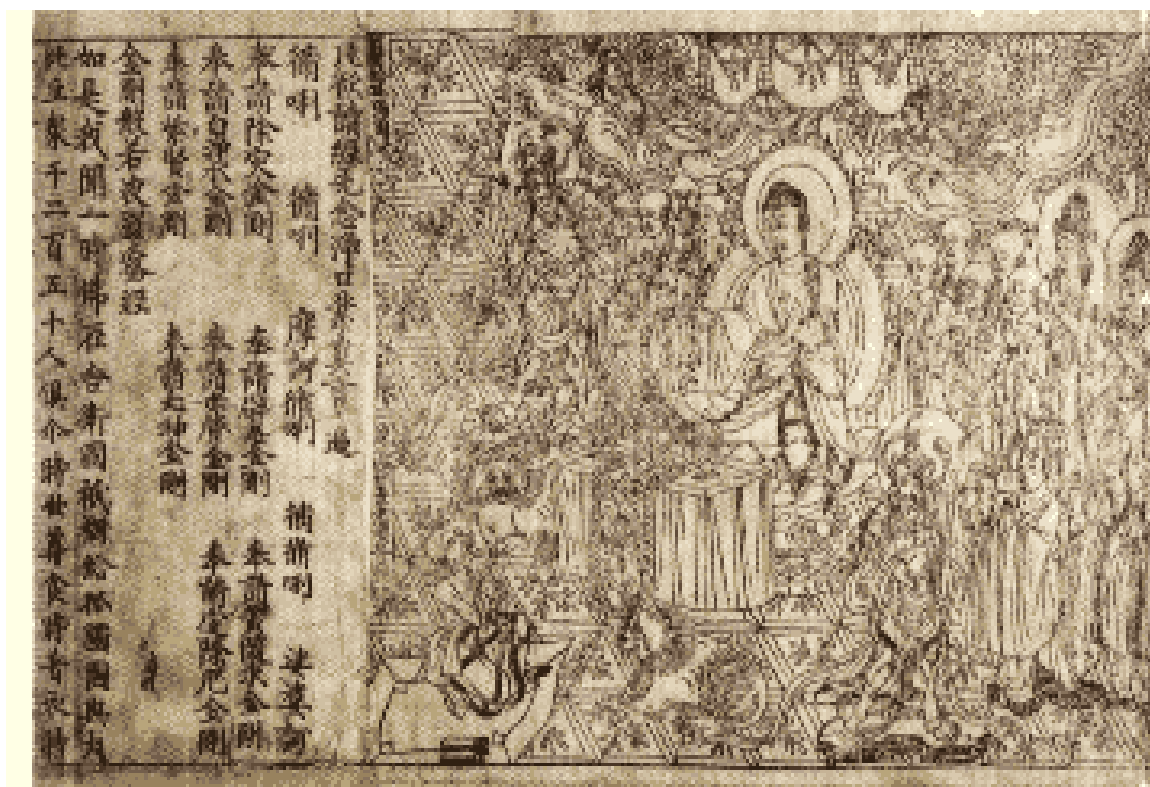 凡欲讀經先念淨口業真言一遍
脩唎 脩唎 摩訶脩唎 脩脩唎 訶
奉請除灾金剛 奉請辟毒金剛 奉請黃隨求金剛
奉請白淨水金剛 奉請赤聲金剛 奉請定除厄金剛
奉請紫賢金剛 奉請大神金剛
金剛般若波羅蜜經
如是我聞一時佛在舍衛國祇樹給孤獨園與大
比丘衆千二百五十人俱尒時世尊食時著衣持